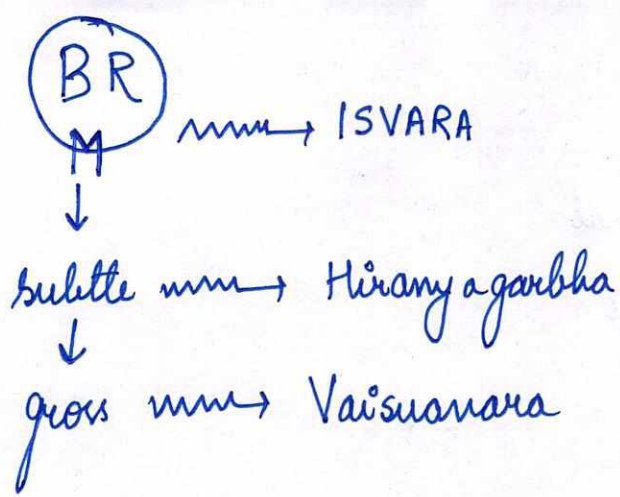 BR
M → ISVARA
↓
subtle → Hiranyagarbha
↓
gross → Vaisvanara